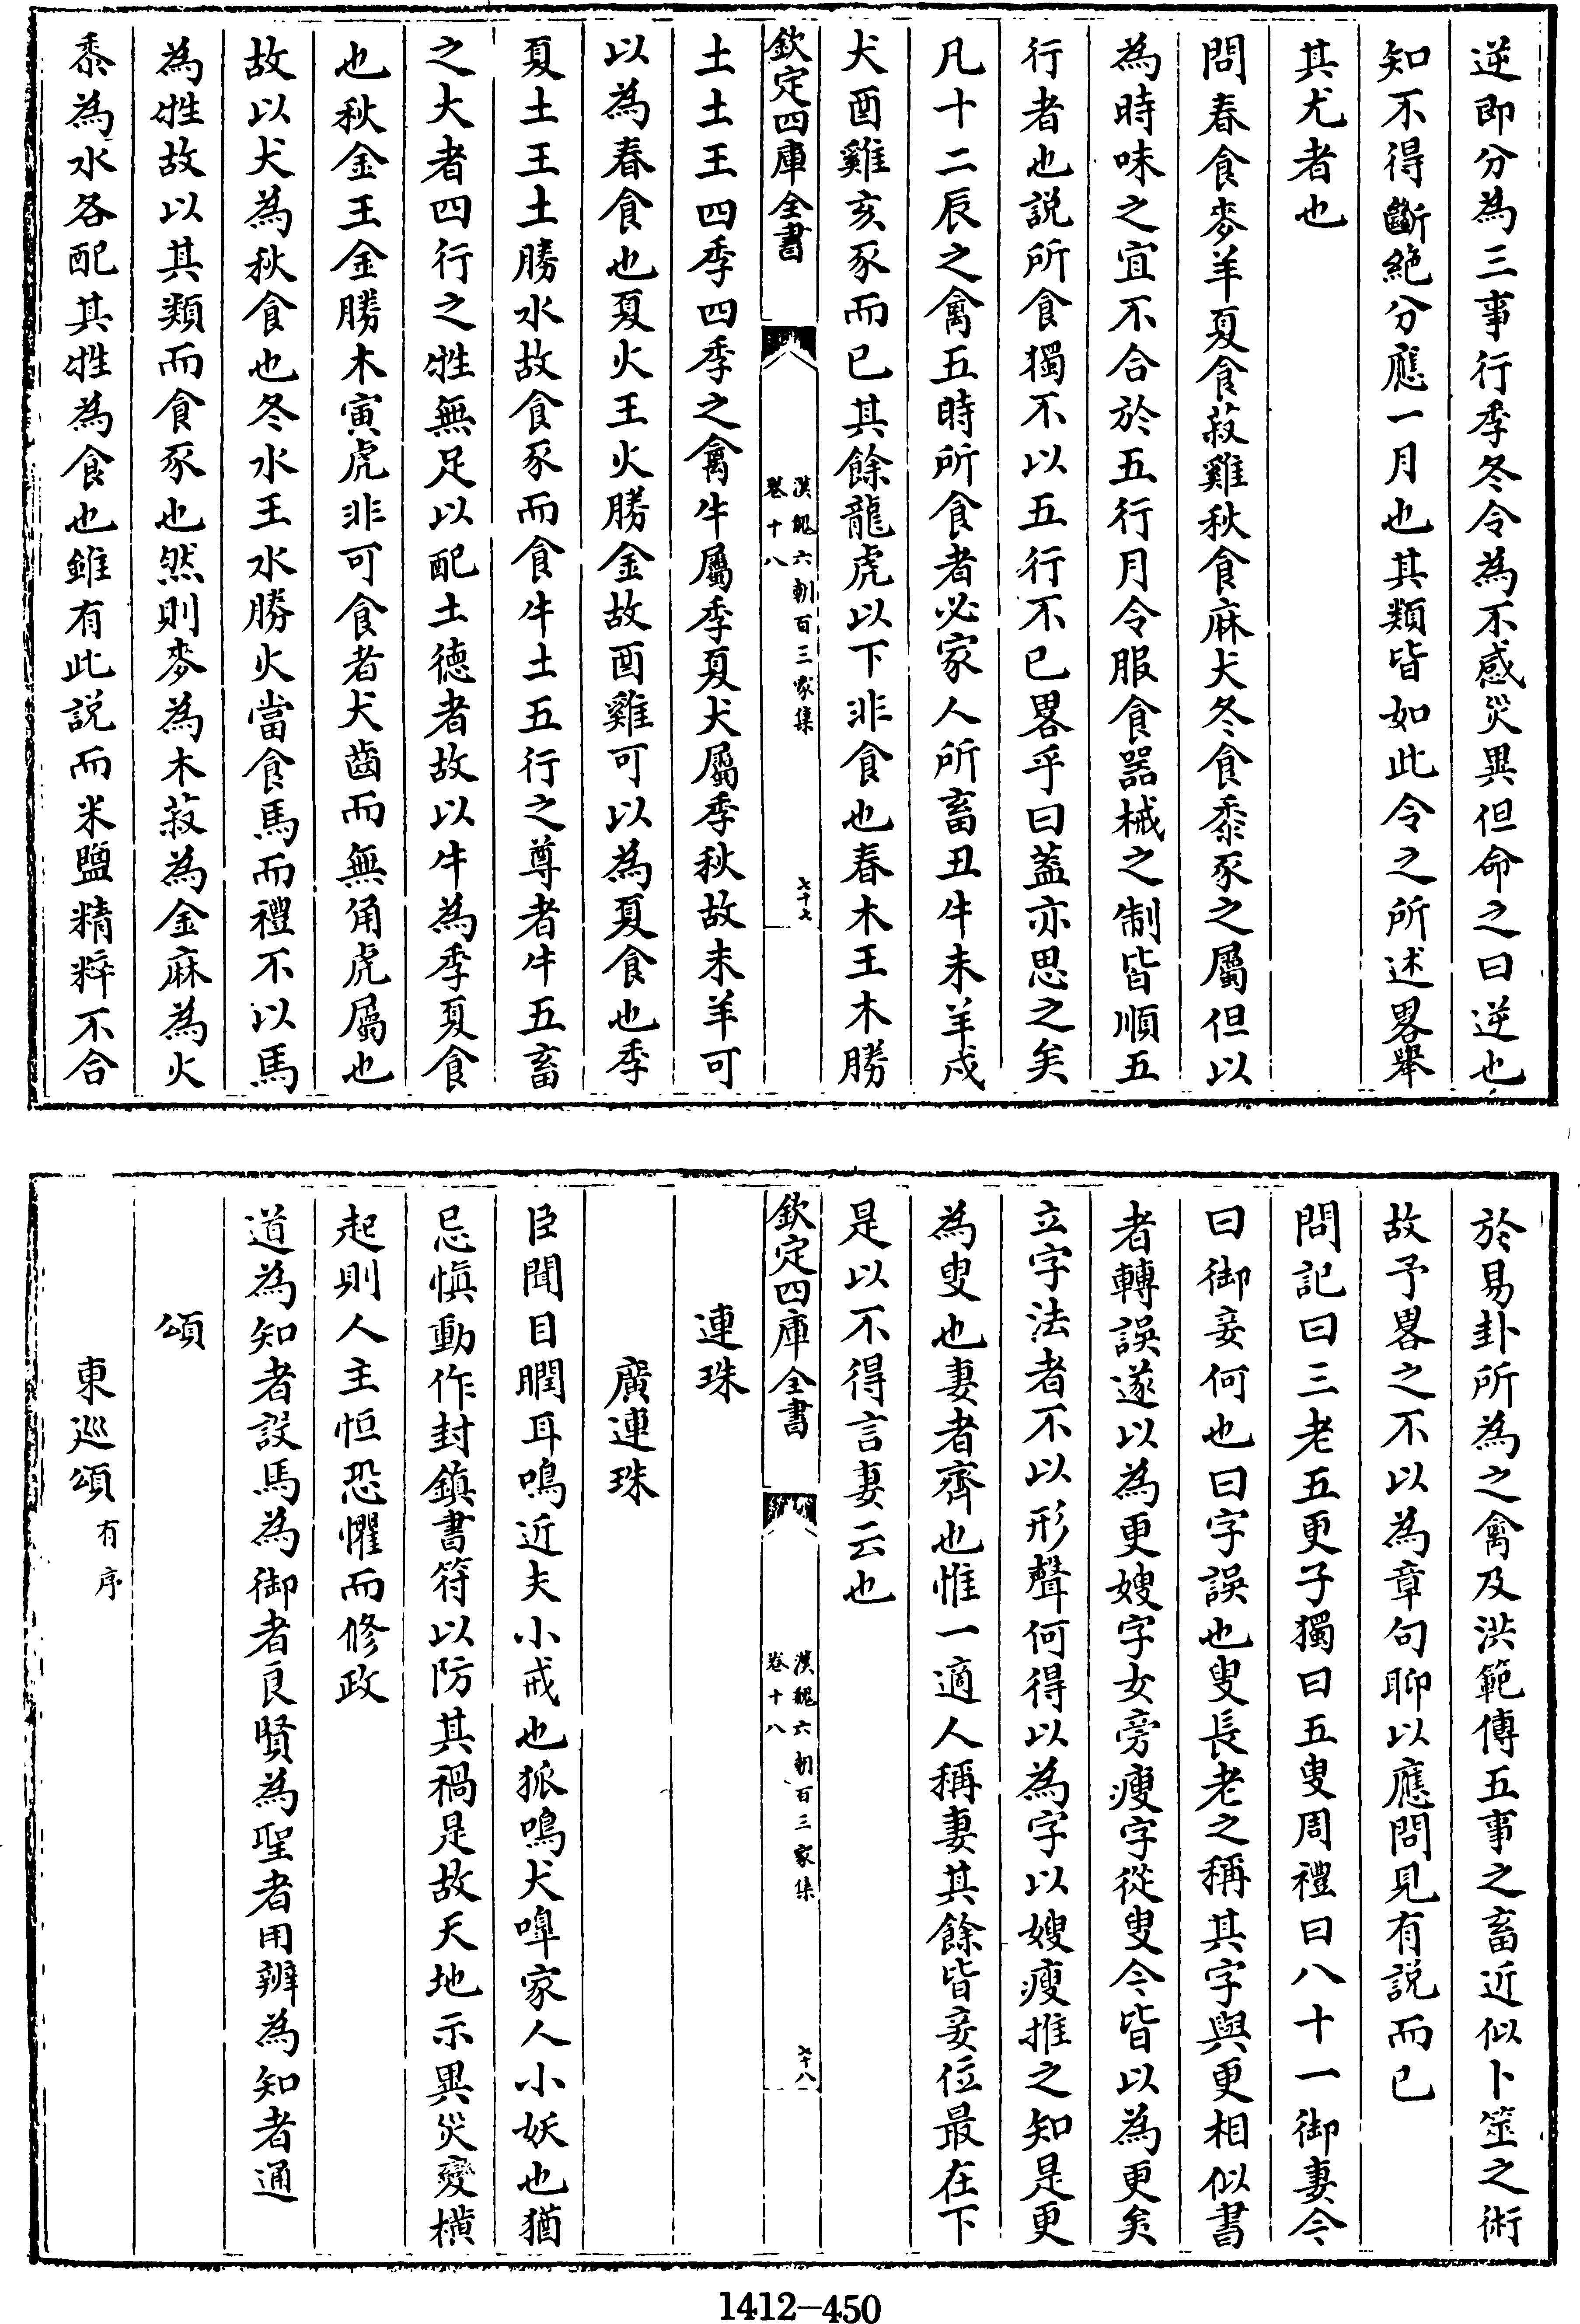 逆即分為三事行季冬令為不感災異但命之曰逆也
知不得斷絕分應一月也其類皆如此令之所述畧舉
其尤者也
問春食麥羊夏食菽雞秋食麻犬冬食黍豕之屬但以
為時味之宜不合於五行月令服食器械之制皆順五
行者也説所食獨不以五行不已畧乎曰蓋亦思之矣
凡十二辰之禽五時所食者必家人所畜丑牛未羊戌
犬酉雞亥豕而已其餘龍虎以下非食也春木王木勝
欽定四庫全書
漢魏六朝百三家集
卷十八
七十七
土土王四季四季之禽牛屬季夏犬屬季秋故未羊可
以為春食也夏火王火勝金故酉雞可以為夏食也季
夏土王土勝水故食豕而食牛土五行之尊者牛五畜
之大者四行之牲無足以配土德者故以牛為季夏食
也秋金王金勝木寅虎非可食者犬齒而無角虎屬也
故以犬為秋食也冬水王水勝火當食馬而禮不以馬
為牲故以其類而食豕也然則麥為木菽為金麻為火
黍為水各配其牲為食也雖有此説而米鹽精粹不合
於易卦所為之禽及洪範傳五事之畜近似卜筮之術
故予畧之不以為章句聊以應問見有説而已
問記曰三老五更子獨曰五叟周禮曰八十一御妻今
曰御妾何也曰字誤也叟長老之稱其字與更相似書
者轉誤遂以為更嫂字女旁瘦字從叟今皆以為更矣
立字法者不以形聲何得以為字以嫂瘦推之知是更
為叟也妻者齊也惟一適人稱妻其餘皆妾位最在下
是以不得言妻云也
欽定四庫全書
漢魏六朝百三家集
卷十八
七十八
連珠
廣連珠
臣聞目瞤耳鳴近夫小戒也狐鳴犬嘷家人小妖也猶
忌慎動作封鎮書符以防其禍是故天地示異災變橫
起則人主恒恐懼而修政
道為知者設馬為御者良賢為聖者用辨為知者通
頌
東巡頌有序
1412—450